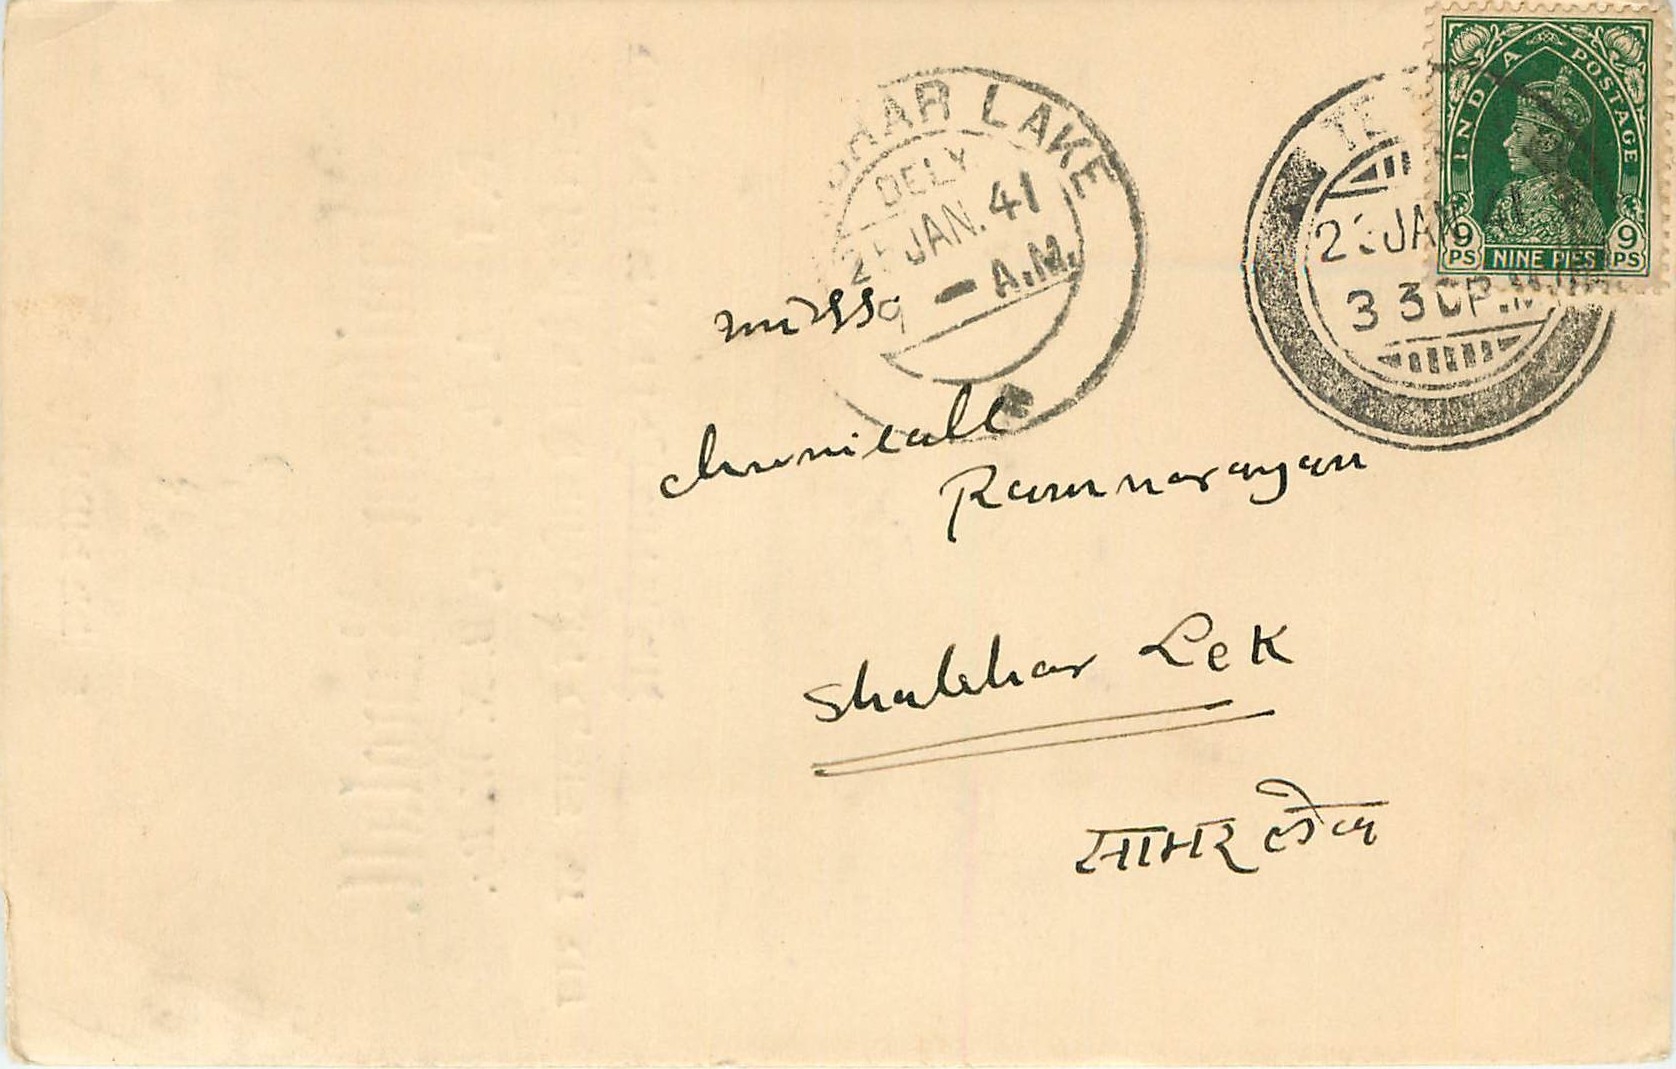 INDIA POSTAGE
9 PS NINE PIES 9 PS
LAKE
DELY
JAN. 41
9 - A.M.
JAN 41
3 30 P.M
Chunilall
Ramnarayan
Shabhar Lek
सामर लेक